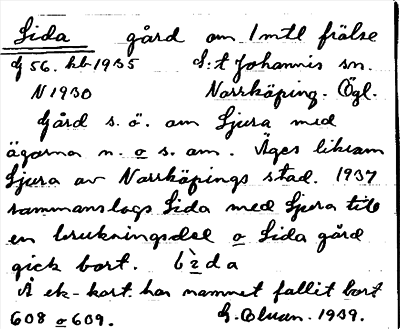 Lida gård om 1 mtl frälse
G 56. hb 1935 S:t Johannis sn.
N 1930 Norrköping. Ögl.
Gård s. ö. om Ljura med
ägorna n. o s. om. Äges liksom
Ljura av Norrköpings stad. 1937
sammanslogs Lida med Ljura till
en brukningsdel o Lida gård
gick bort. lìda
Å ek-kart. har namnet fallit bort
608 o 609. G. 1939.